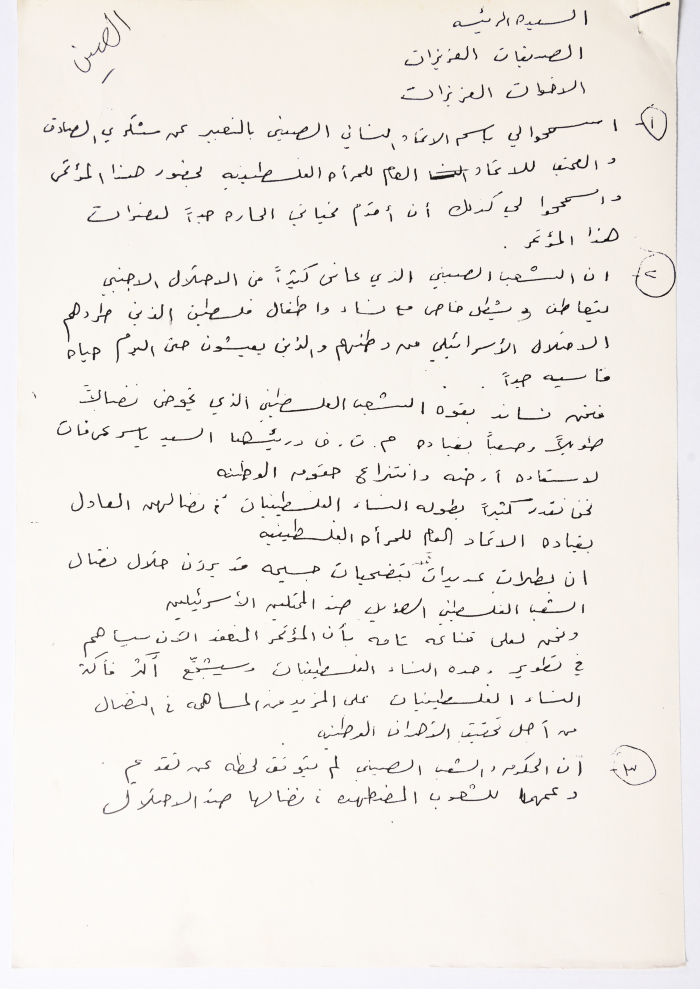 الصين
السيده الرئيسه
الصديقات العزيزات
الاخوات العزيزات
١ اسمحوا لي باسم الاتحاد النسائي الصيني بالتعبير عن شكري الصادق
و العميق للاتحاد العام للمرأه الفلسطينيه لحضور هذا المؤتمر
واسمحوا لي كذلك أن أقدم تحياتي الحاره جداً لعضوات
هذا المؤتمر .
٢ ان الشعب الصيني الذي عانى كثيراً من الاحتلال الاجنبي
يتعاطف و بشكل خاص مع نساء واطفال فلسطين الذين طردهم
الاحتلال الأسرائيلي من وطنهم والذين يعيشون حتى اليوم حياه
قاسيه جداً .
فنحن نساند بقوه الشعب الفلسطيني الذي يخوض نضالاً
طويلاً وصعباً بقياده م . ت . ف ورئيسها السيد ياسر عرفات
لاستعاده أرضه وانتزاع حقوقه الوطنيه
نحن نقدر كثيراً بطوله النساء الفلسطينيات في نضالهن العادل
بقياده الاتحاد العام للمرأه الفلسطينيه
ان بطلات عديدات بتضحيات جسيمه قد برزن خلال نضال
الشعب الفلسطيني الطويل ضد المحتلين الأسرئيلين
ونحن لعلى قناعه تامه بأن المؤتمر المنعقد الآن سيساهم
في تطوير وحده النساء الفلسطينيات وسيشجع أكثر فأكثر
النساء الفلسطينيات على المزيد من المساهمه في النضال
من أجل تحقيق الأهداف الوطني
٣ ان الحكومه والشعب الصيني لم يتوقف لحظه عن تقديم
دعمهما للشعوب المضطهده في نضالها ضد الاحتلال